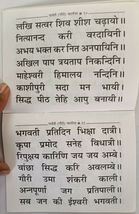 लखि सत्वर शिव शीश चढ़ायो ॥
नित्यानन्द करी वरदायिनी ।
अभय भक्त कर नित अनपायिनी ॥
अखिल पाप त्रयताप निकन्दिनि ।
माहेश्वरी हिमालय नन्दिनि ॥
काशीपुरी सदा मन भायी ।
सिद्ध पीठ तेहि आपु बनायी ॥
भगवती प्रतिदिन भिक्षा दात्री ।
कृपा प्रमोद सनेह विधात्री ॥
रिपुक्षय कारिणि जय जय अम्बे ।
वांछा सिद्ध करि अवलम्बे ॥
गौरी उमा शंकरी काली ।
अन्नपूर्णा जग प्रतिपाली ॥
सब जन की ईश्वरी भगवती ।